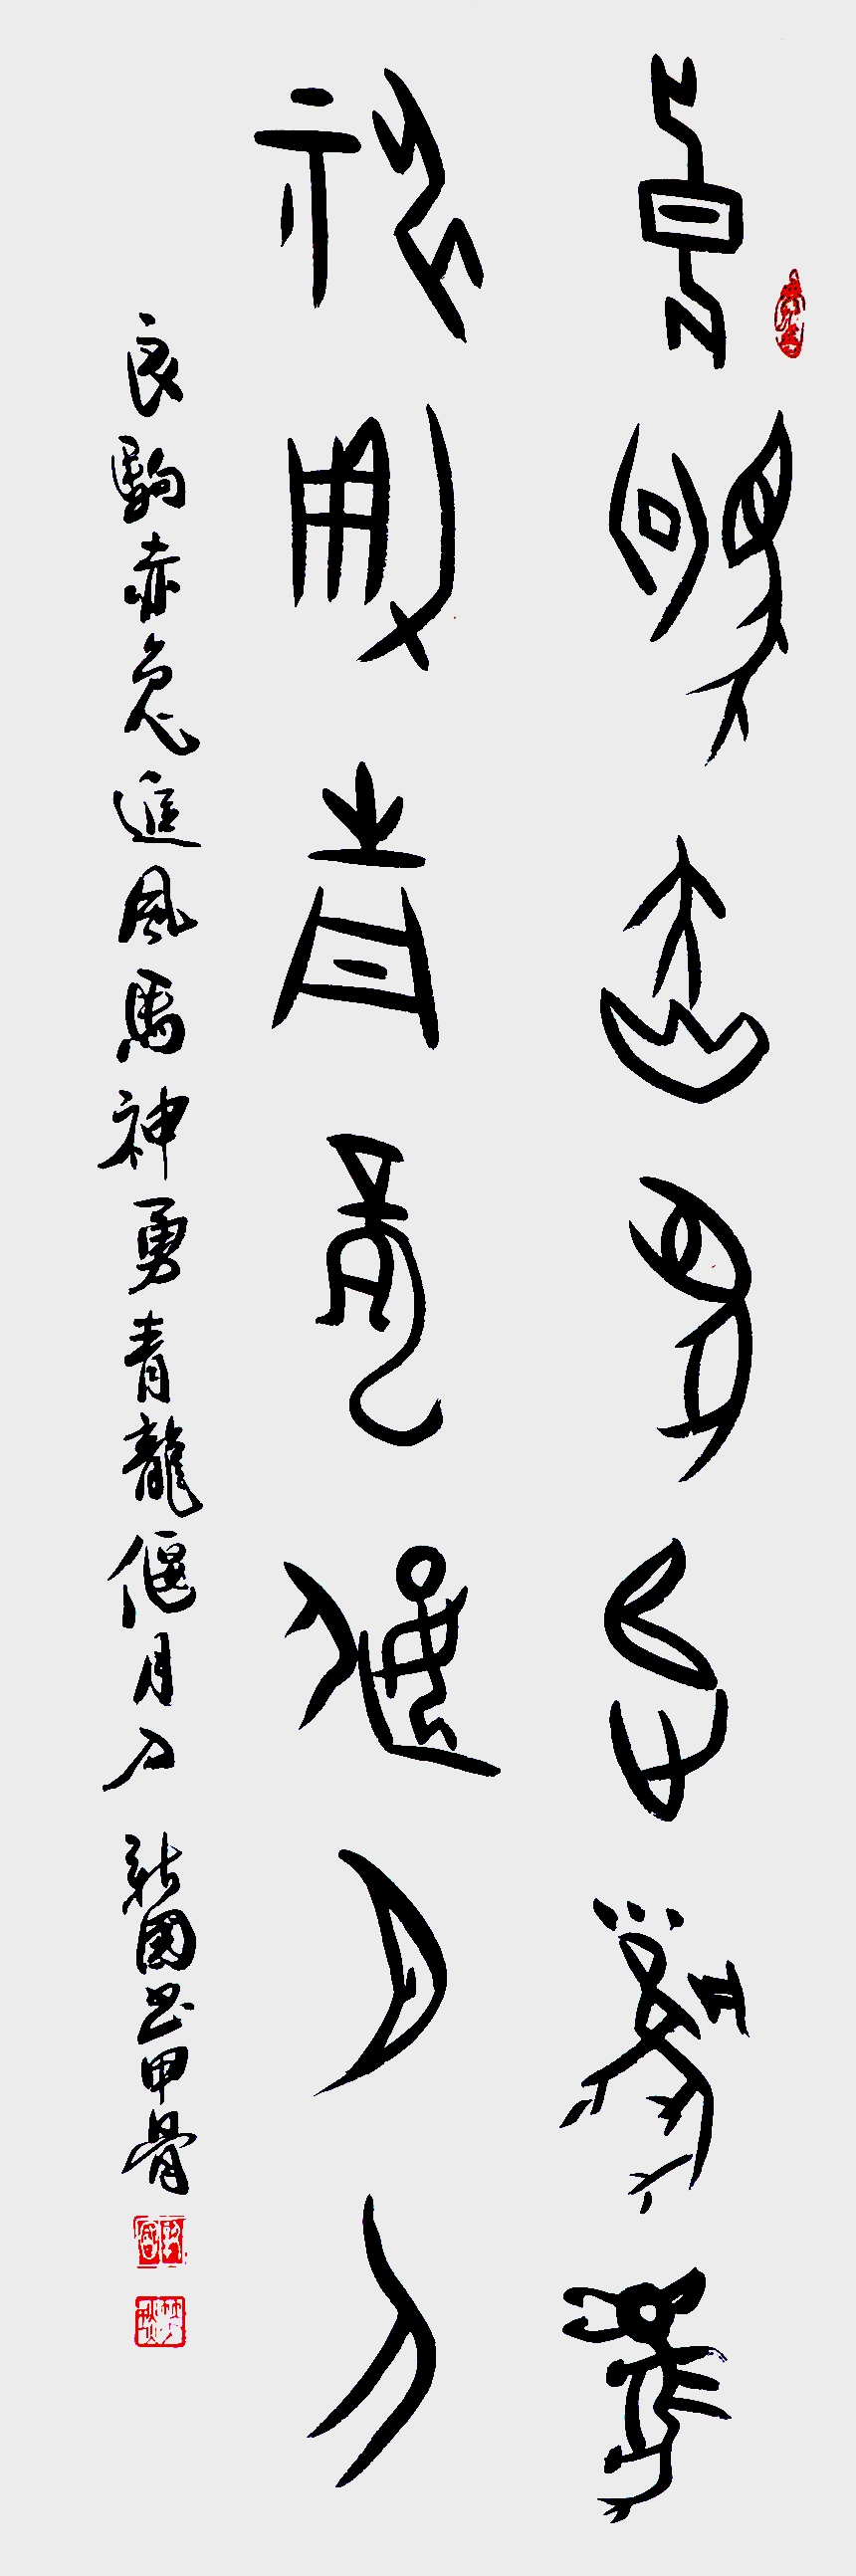 良駒赤兔追風馬
神勇青龍偃月刀
良駒赤兔追風馬神勇青龍偃月刀 國书甲骨